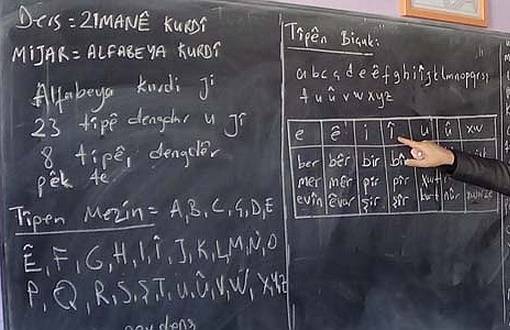 Ders = ZIMANÊ KURDÎ
MIJAR = ALFABEYA KURDÎ
Alfabeya kurdi ji
23 tipê dengdar u ji
8 tipê, dengdêr
pêk te
Tipen Mezin = A, B, C, Ç, D, E
Ê, F, G, H, I, Î, J, K, L, M, N, O
P, Q, R, S, Ş, T, U, Û, V, W, X, Y, Z
Tipên Biçuk:
a b c ç d e ê f g h i î j k l m n o p q r s ş
t u û v w x y z
e ê i î u û xw
ber bêr bir
mer mêr pir pîr
evîn êvar şir şîr kurt nûr